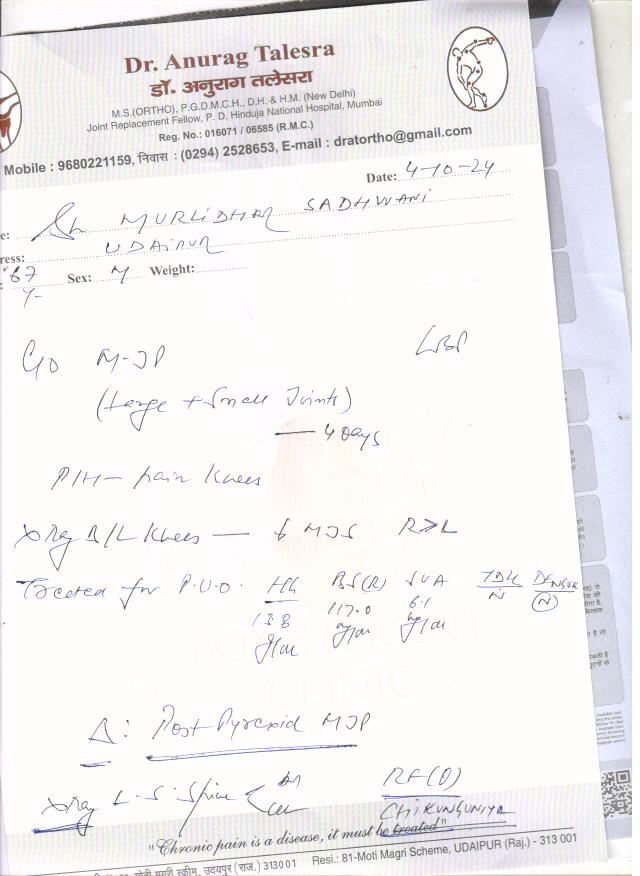 Dr. Anurag Talesra
डॉ. अनुराग तलेसरा
M.S.(ORTHO), P.G.D.M.C.H., D.H. & H.M. (New Delhi)
Joint Replacement Fellow, P. D. Hinduja National Hospital, Mumbai
Reg. No.: 016071 / 06585 (R.M.C.)
Mobile : 9680221159, निवास : (0294) 2528653, E-mail : dratortho@gmail.com
Date: 4-10-24
e: Sh MURLIDHAR SADHWANI
ress: UDAIPUR
67 Sex: M Weight:
C/o M-JP LBP
(Large + Small Joints)
— 4 Days
P/H - pain Knees
Xray B/L Knees — ↓ MJS R>L
Treated for P.U.O. Hb BS(R) SUA TDL DENGUE
13.8 117.0 6.1 N (N)
Δ: Post Pyrexid MJP
Xray L-S-Spine RF(Q)
CHIKUNGUNIYA
"Chronic pain is a disease, it must be treated"
स्कीम, उदयपुर (राज.) 313001 Resi.: 81-Moti Magri Scheme, UDAIPUR (Raj.) - 313 001